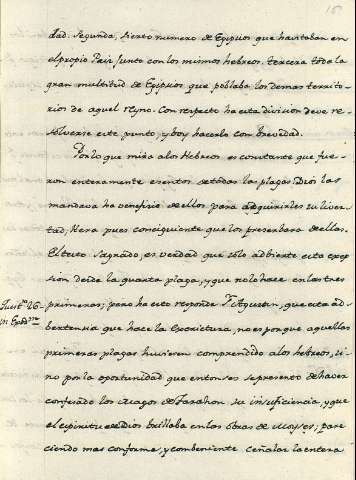 15
dad. Segunda, cierto numero de Egipcios que havitaban en
el propio Pais junto con los mismos hebreos. tercera toda la
gran multitud de Egipcios que poblaba los demas territo-
rios de aquel reyno. Con respecto ha esta division deve re-
solverse este punto, y boy hacerlo con brevedad.
Por lo que mira alos Hebreos es constante que fue-
ron enteramente esentos de todas las plagas. Dios las
mandava ha veneficio de ellos para adquirirles su liver-
tad; Hera pues consiguiente que los preserbara de ellas.
El testo Sagrado, es verdad que solo adbierte esta excep-
sion desde la quarta plaga, y que no lo hace en las tres
primeras; pero ha esto responde S. Agustin, que esta ad-
Quest.º 26
in Exod.
bertensia que hace la Escritura, no es porque aquellas
primeras plagas huviesen comprendido alos hebreos, si
no por la oportunidad que entonses se presento de haver
confesado los Magos de Farahon su insuficiencia, y que
el espiritu de Dios brillaba en las obras de Moyses; pare
ciendo mas conforme, y combeniente señalar la entera